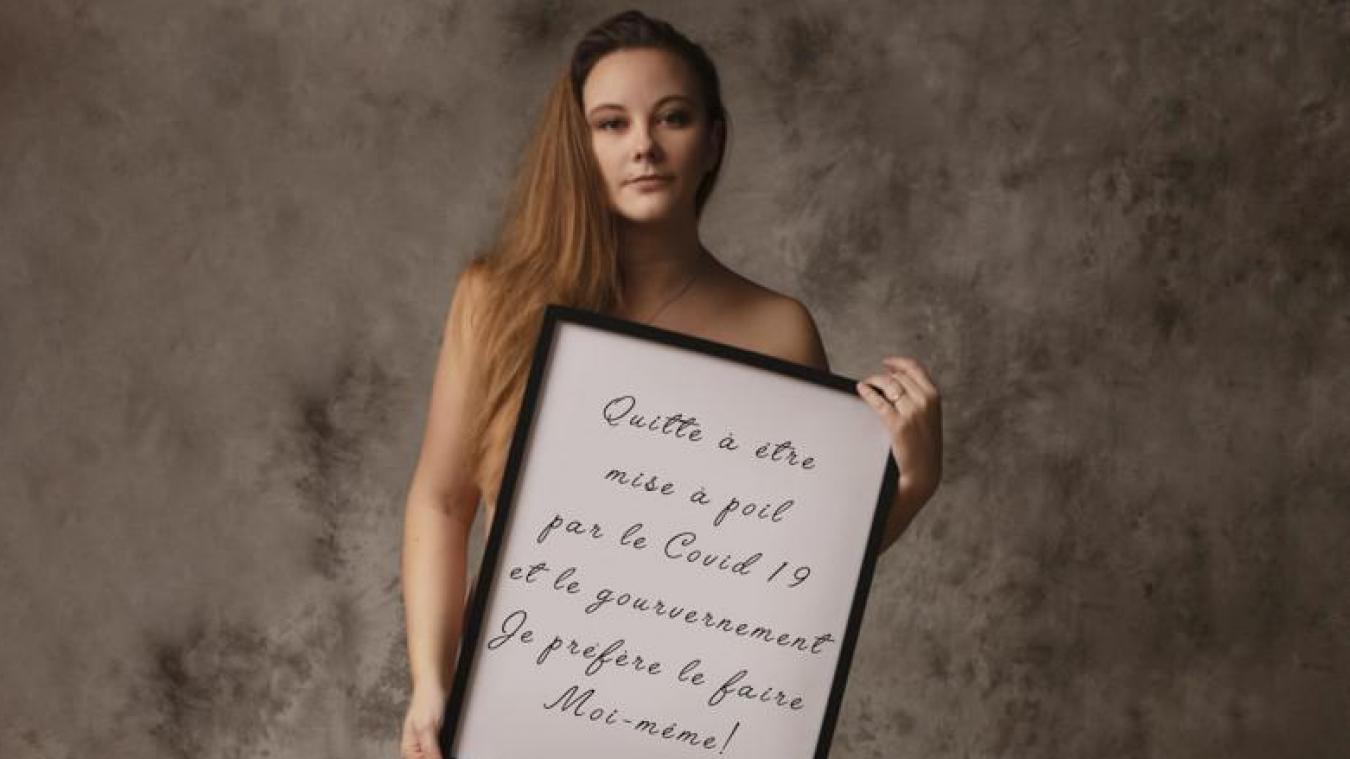 Quitte à être
mise à poil
par le Covid 19
et le gourvernement
Je préfère le faire
Moi-même!